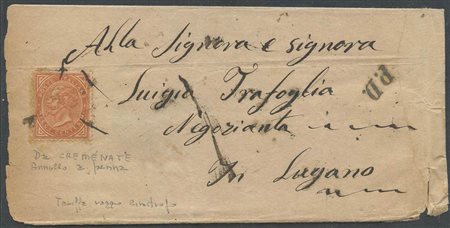 Alla Signora e signora
P.D.
Luigia Trafoglia
Negozianta
In Lugano
Da CREMENATE
Annullo a penna
Tariffa raggio